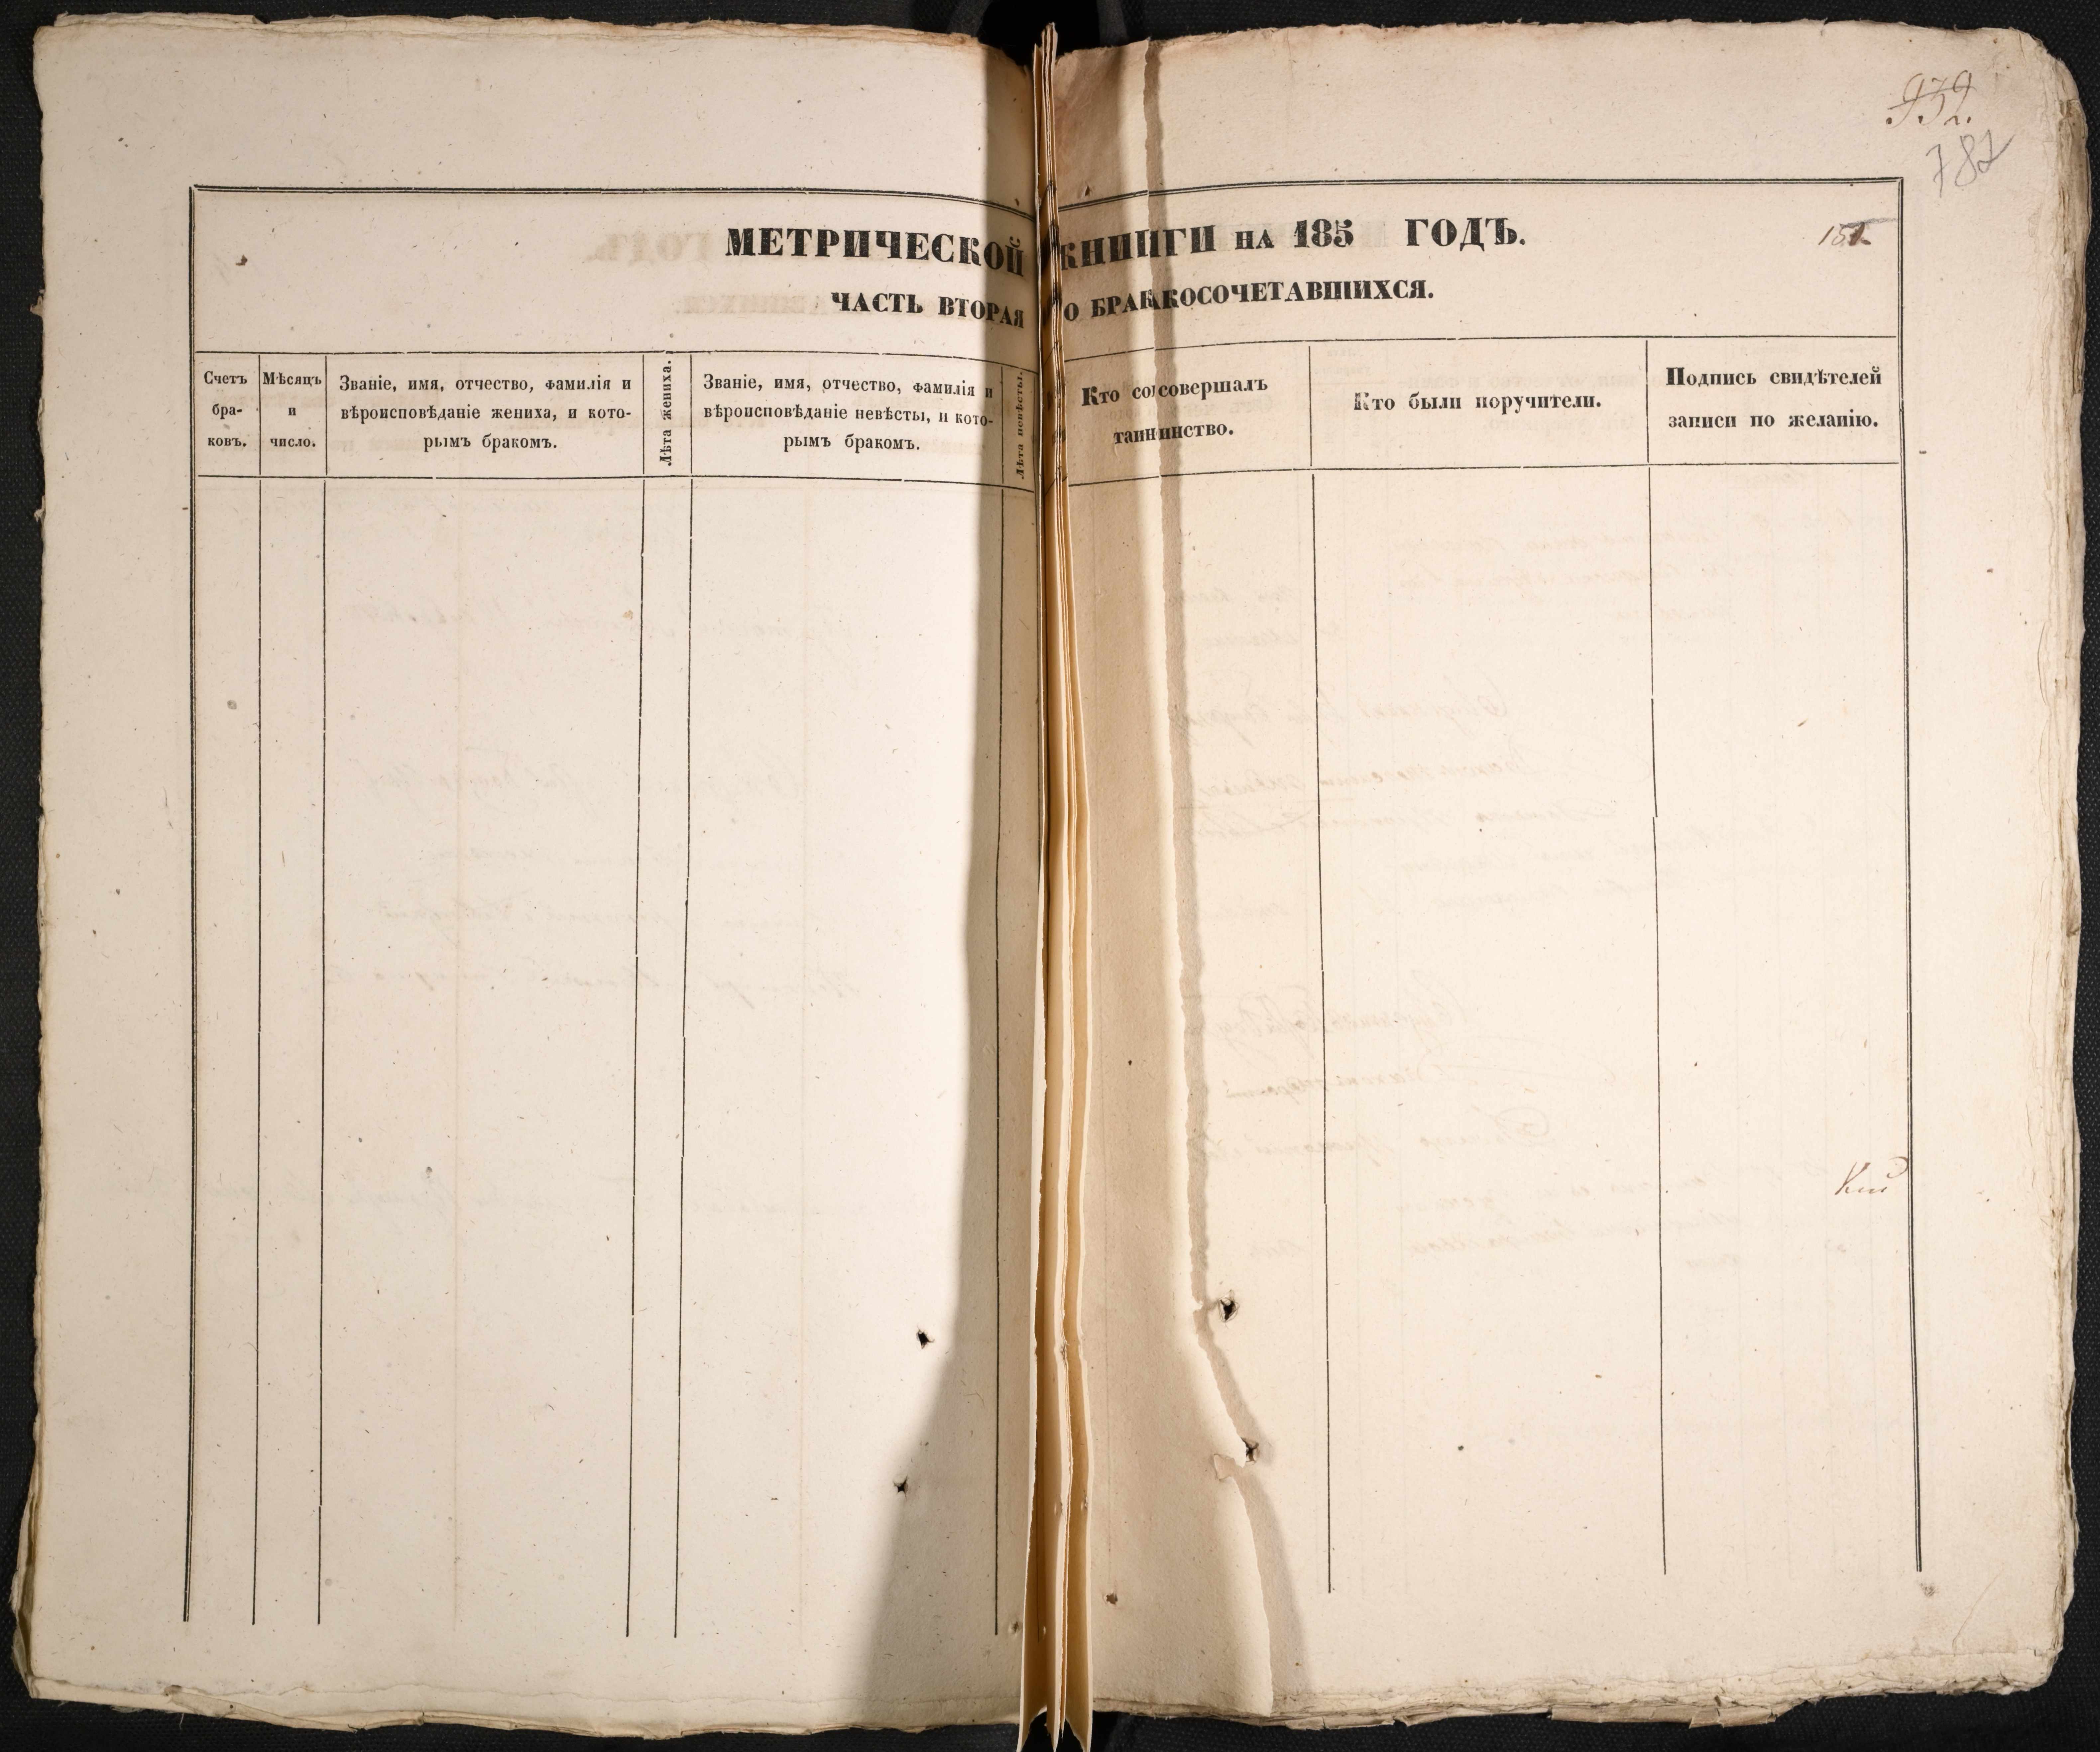 932.
782
МЕТРИЧЕСКОЙ КНИГИ НА 185 ГОДЪ.
ЧАСТЬ ВТОРАЯ О БРАКОСОЧЕТАВШИХСЯ.
Счетъ бра-
ковъ.
Мѣсяцъ
и
число.
Званіе, имя, отчество, фамилія и
вѣроисповѣданіе жениха, и кото-
рымъ бракомъ.
Лѣта жениха.
Званіе, имя, отчество, фамилія и
вѣроисповѣданіе невѣсты, и кото-
рымъ бракомъ.
Лѣта невѣсты.
Кто совершалъ
таинство.
Кто были поручители.
Подпись свидѣтелей
записи по желанію.